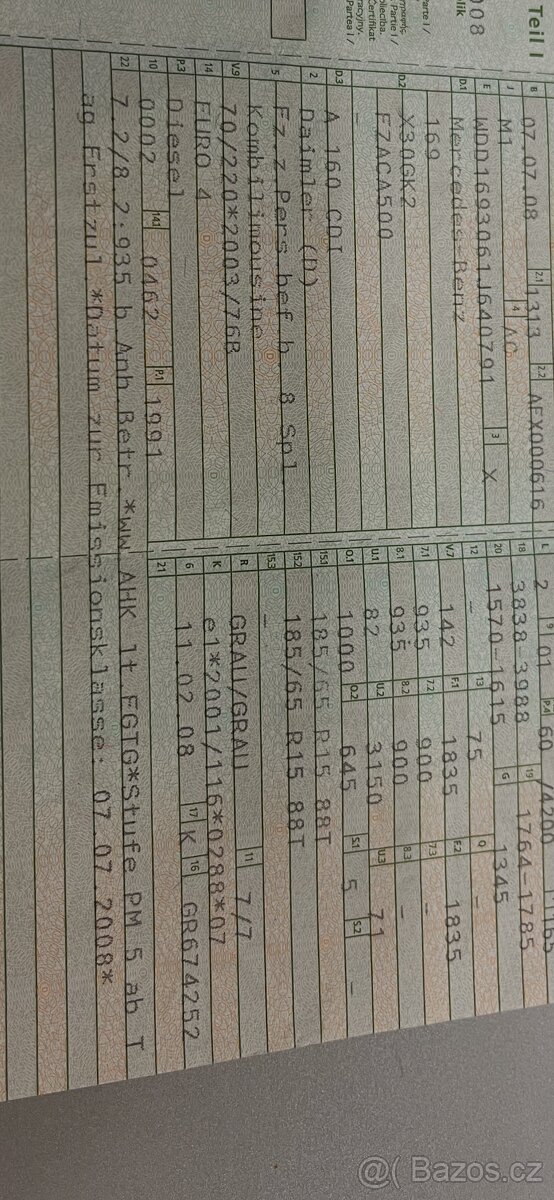 Teil I
008
lik
Parte I /
Partie I /
Certifikat
Partea I /
B 07.07.08 2.1 1313 2.2 AFX000616
J M1 4 AC
E WDD1693061J640791 3 X
D.1 Mercedes-Benz
169
D.2 X30GK2
FZACA500
-
D.3 A 160 CDI
2 Daimler (D)
5 Fz.z.Pers.bef.b. 8 Spl.
Kombilimousine
V.9 70/220*2003/76B
14 EURO 4
P.3 Diesel
10 0002 14.1 0462 P.1 1991
L 2 9 01 P.4 60 /4200
18 3838-3988 19 1764-1785
20 1570-1615 G 1345
12 - 13 75 Q -
V.7 142 F.1 1835 F.2 1835
7.1 935 7.2 900 7.3 -
8.1 935 8.2 900 8.3 -
U.1 82 U.2 3150 U.3 71
O.1 1000 O.2 645 S.1 5 S.2 -
15.1 185/65 R15 88T
15.2 185/65 R15 88T
15.3 -
R GRAU/GRAU 11 7/7
K e1*2001/116*0288*07
6 11.02.08 17 K 16 GR674252
21
22 7.2/8.2:935 b.Anh.Betr.*ww.AHK lt.EGTG*Stufe PM 5 ab T
ag Erstzul.*Datum zur Emissionsklasse: 07.07.2008*
@( Bazos.cz